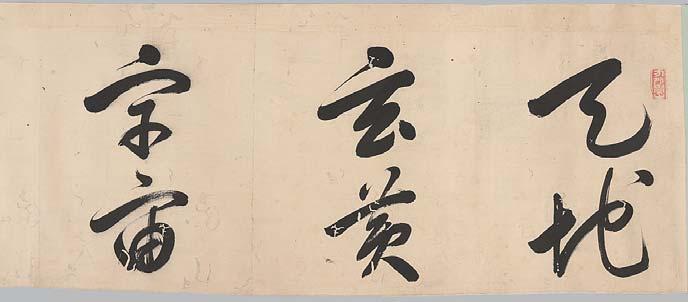 天地
玄黄
宇宙